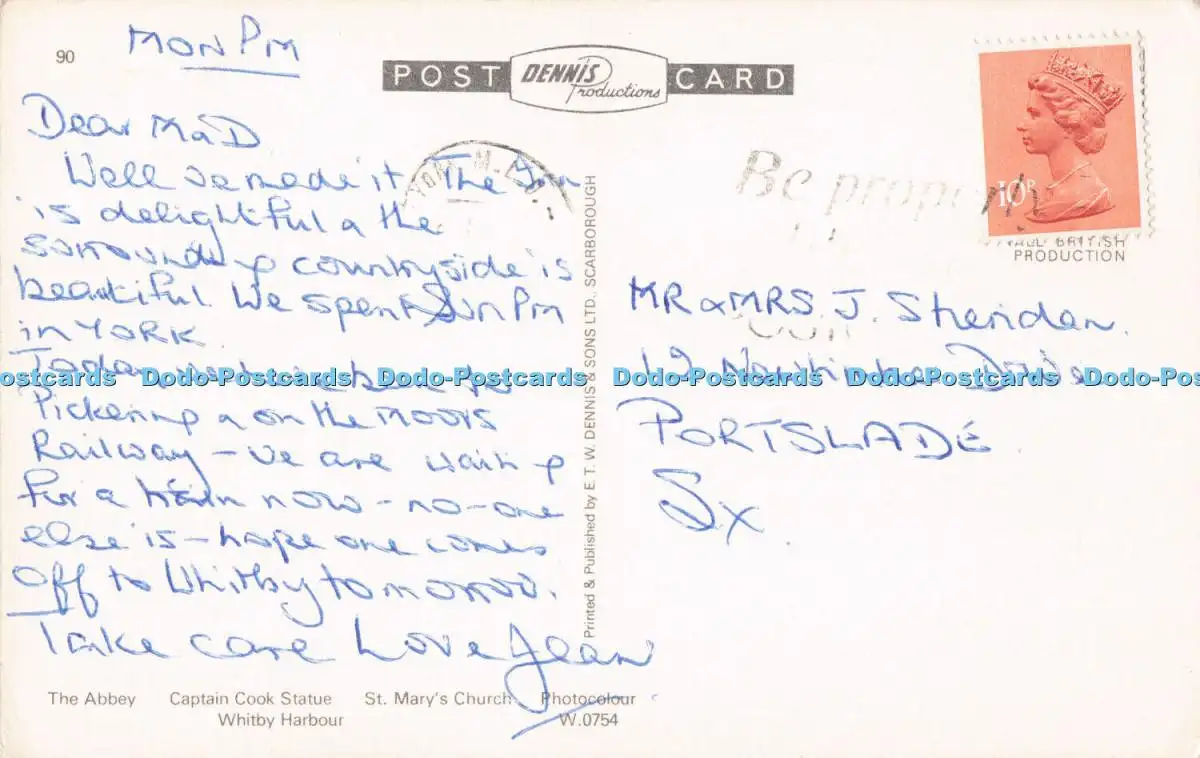 90
MON PM
POST DENNIS Productions CARD
Dear M a D
Well we made it. The Inn
is delightful a the
surrounding countryside is
beautiful. We spent Sun Pm
in YORK
Today
Pickering a on the MOORS
Railway - we are waiting
for a train now - no-one
else is - hope one comes
Off to Whitby tomorrow.
Take care Love Jean
The Abbey Captain Cook Statue St. Mary's Church Photocolour
Whitby Harbour W.0754
Printed & Published by E. T. W. DENNIS & SONS LTD., SCARBOROUGH
Be
10P
ALL BRITISH
PRODUCTION
MR a MRS. J. Sheridan.
19
PORTSLADE
Sx.
Dodo-Postcards Dodo-Postcards Dodo-Postcards Dodo-Postcards Dodo-Postcards